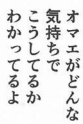 オマエがどんな
気持ちで
こうしてるか
わかってるよ